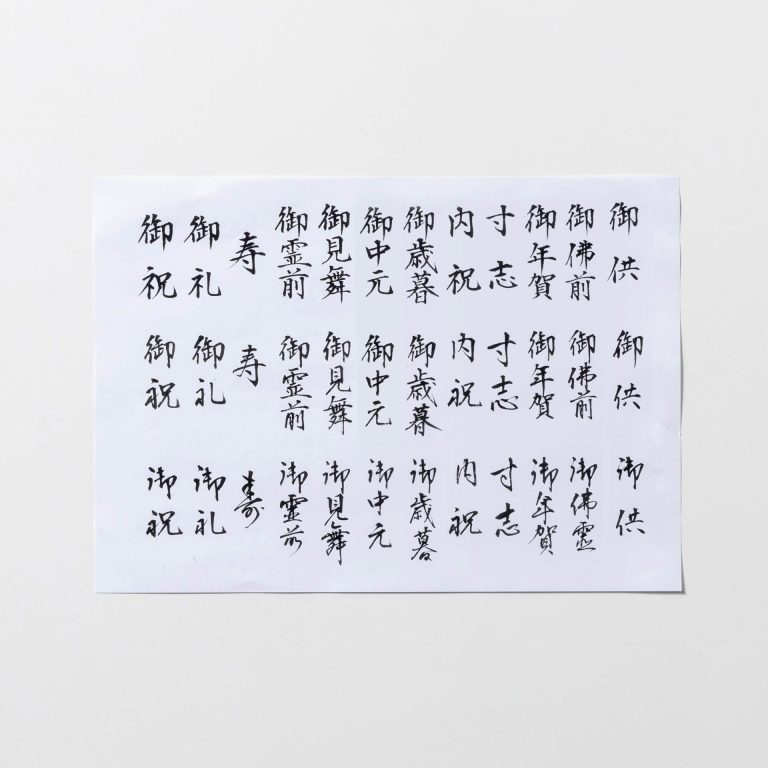 御供
御佛前
御年賀
寸志
内祝
御歳暮
御中元
御見舞
御霊前
寿
御礼
御祝
御供
御佛前
御年賀
寸志
内祝
御歳暮
御中元
御見舞
御霊前
寿
御礼
御祝
御供
御佛霊
御年賀
寸志
内祝
御歳暮
御中元
御見舞
御霊前
寿
御礼
御祝